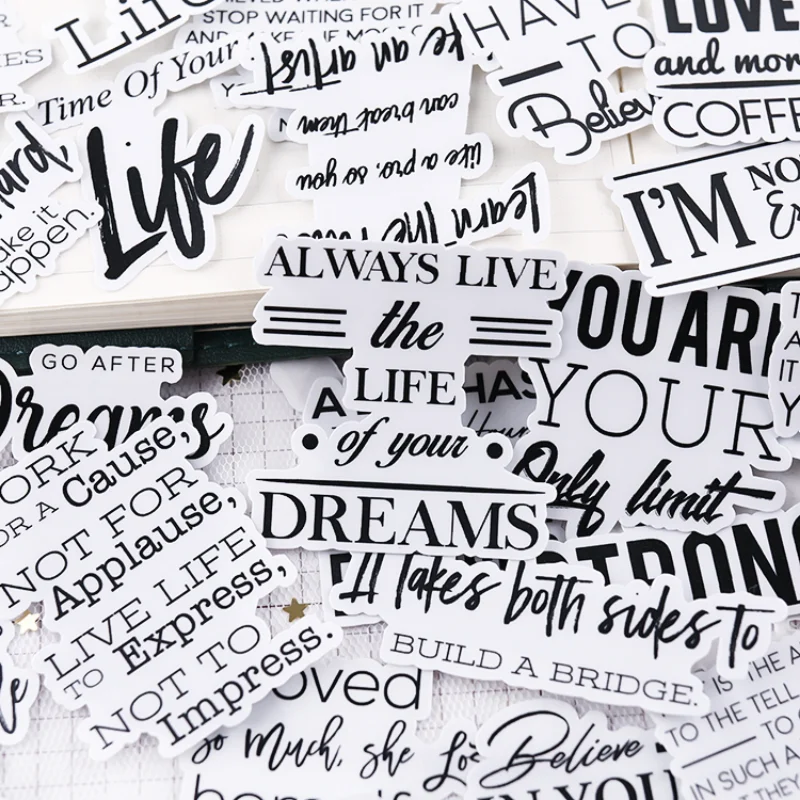 Life
STOP WAITING FOR IT
Time Of Your
Life
an artist
can break them
like a pro, so you
Learn The
HAVE
TO
Believe
LOVE
and more
COFFE
I'M
NO
&
ake it
appen.
GO AFTER
Dreams
ORK
OR A Cause,
NOT FOR
Applause,
LIVE LIFE
TO Express,
NOT TO
Impress.
ALWAYS LIVE
the
LIFE
of your
DREAMS
HAS
YOU ARE
YOUR
Only limit
STRONG
It Takes both sides to
BUILD A BRIDGE.
oved
so Much, she
Believe
IN YOU
IS THE A
TO THE TELL
TO
IN SUCH A